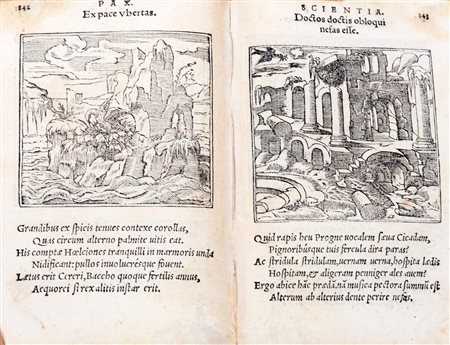 142
PAX.
Ex pace vbertas.
Grandibus ex spicis tenues contexe corollas,
Quas circum alterno palmite vitis eat.
His comptæ Halciones tranquilli in marmoris unda
Nidificant: pullos inuolucresque fouent.
Lætus erit Cereri, Baccho quoque fertilis annus,
Aequorei si rex alitis instar erit.
SCIENTIA.
143
Doctos doctis obloqui
nefas esse.
Quid rapis heu Progne vocalem sæua Cicadam,
Pignoribusque tuis fercula dira paras?
Ac stridula stridulam, vernam verna, hospita lædis
Hospitam, & aligeram penniger ales auem?
Ergo abice hãc prædã. nã musica pectora summũ est
Alterum ab alterius dente perire nefas.